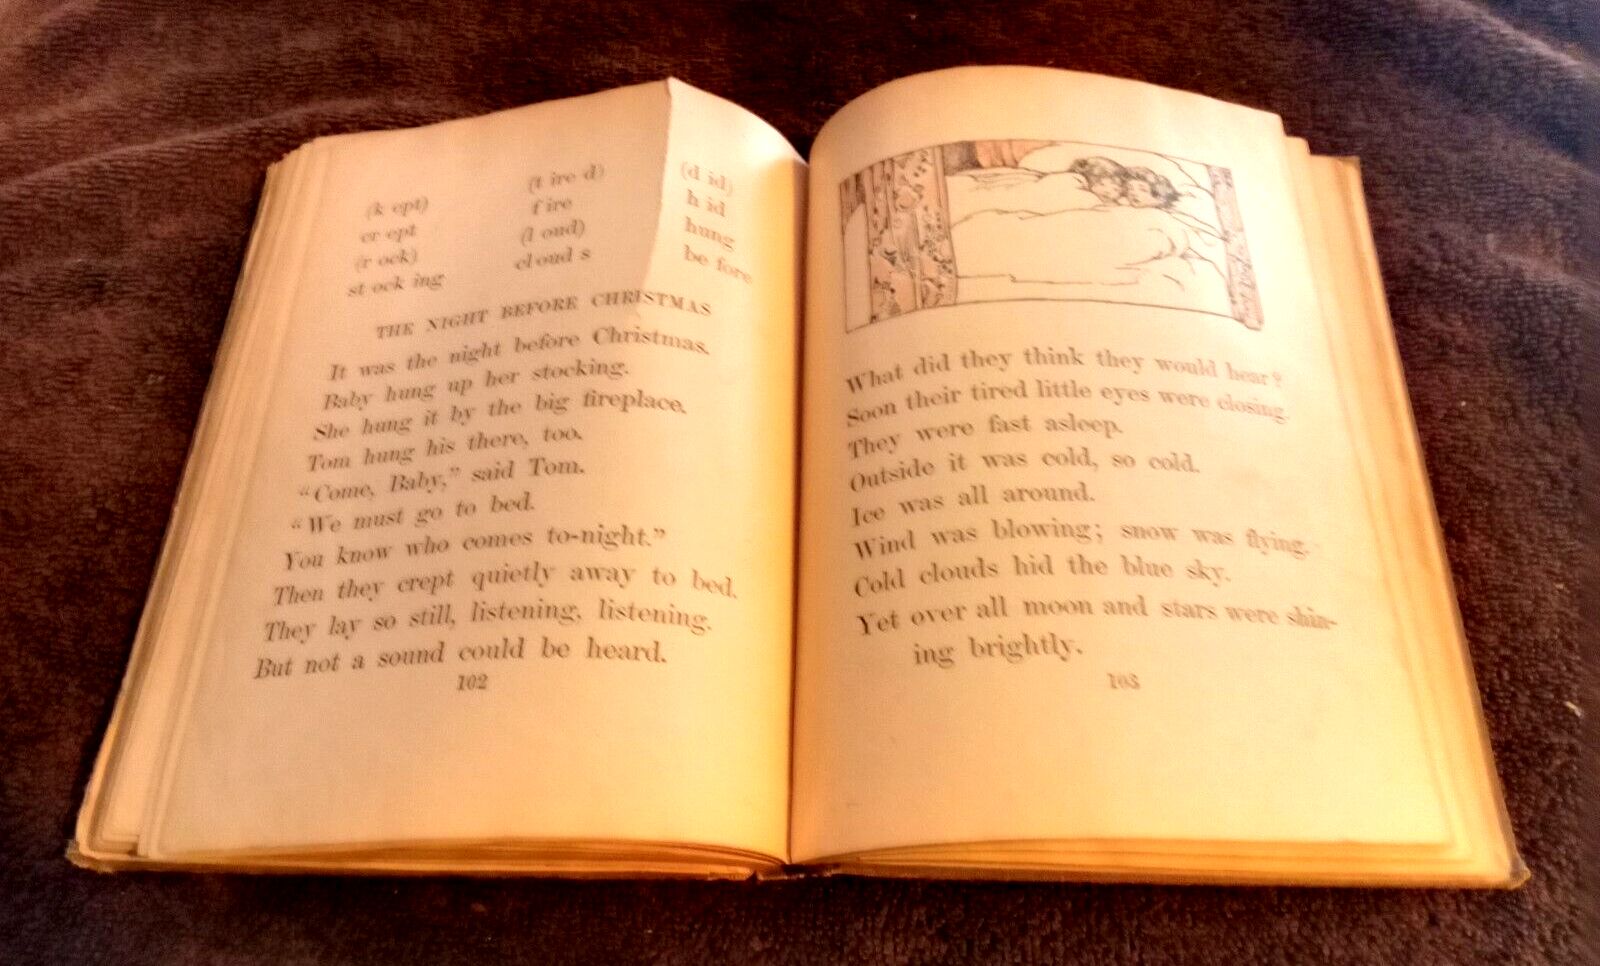 (k ept)
cr ept
(r ock)
st ock ing
(t ire d)
f ire
(l oud)
cl oud s
(d id)
h id
hung
be fore
THE NIGHT BEFORE CHRISTMAS
It was the night before Christmas.
Baby hung up her stocking.
She hung it by the big fireplace.
Tom hung his there, too.
“Come, Baby,” said Tom.
“We must go to bed.
You know who comes to-night.”
Then they crept quietly away to bed.
They lay so still, listening, listening.
But not a sound could be heard.
102
What did they think they would hear?
Soon their tired little eyes were closing.
They were fast asleep.
Outside it was cold, so cold.
Ice was all around.
Wind was blowing; snow was flying.
Cold clouds hid the blue sky.
Yet over all moon and stars were shin-
ing brightly.
103